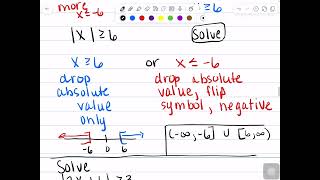 more
x≥-6
≥6
|x| ≥ 6
Solve
x ≥ 6 or x ≤ -6
drop absolute value only
drop absolute value, flip symbol, negative
-6 0 6
(-∞, -6] ∪ [6, ∞)
Solve